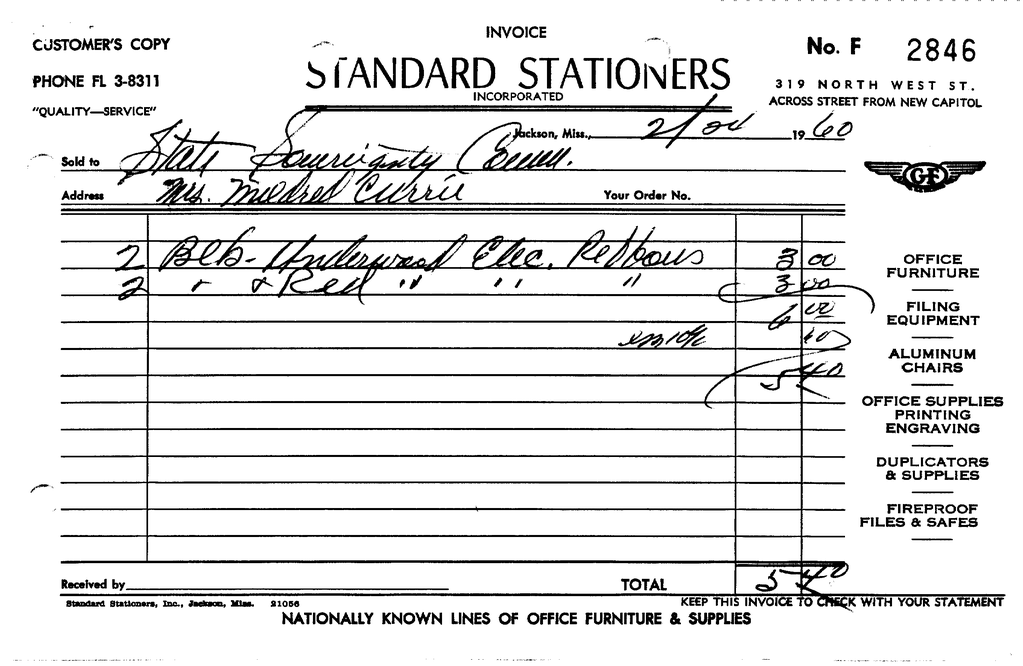 INVOICE
CUSTOMER'S COPY
No. F 2846
PHONE FL 3-8311
STANDARD STATIONERS
INCORPORATED
319 NORTH WEST ST.
ACROSS STREET FROM NEW CAPITOL
"QUALITY—SERVICE"
Jackson, Miss., 2/24 1960
Sold to State Souvrianty Comm.
Address Mrs. Mildred Currie Your Order No.
2 Blk- Underwood Elec. Ribbons 3 00
2 " & Red " " " 3 00
6 00
10% 60
5 40
OFFICE
FURNITURE
FILING
EQUIPMENT
ALUMINUM
CHAIRS
OFFICE SUPPLIES
PRINTING
ENGRAVING
DUPLICATORS
& SUPPLIES
FIREPROOF
FILES & SAFES
GF
Received by TOTAL 5 40
Standard Stationers, Inc., Jackson, Miss. 21056
KEEP THIS INVOICE TO CHECK WITH YOUR STATEMENT
NATIONALLY KNOWN LINES OF OFFICE FURNITURE & SUPPLIES